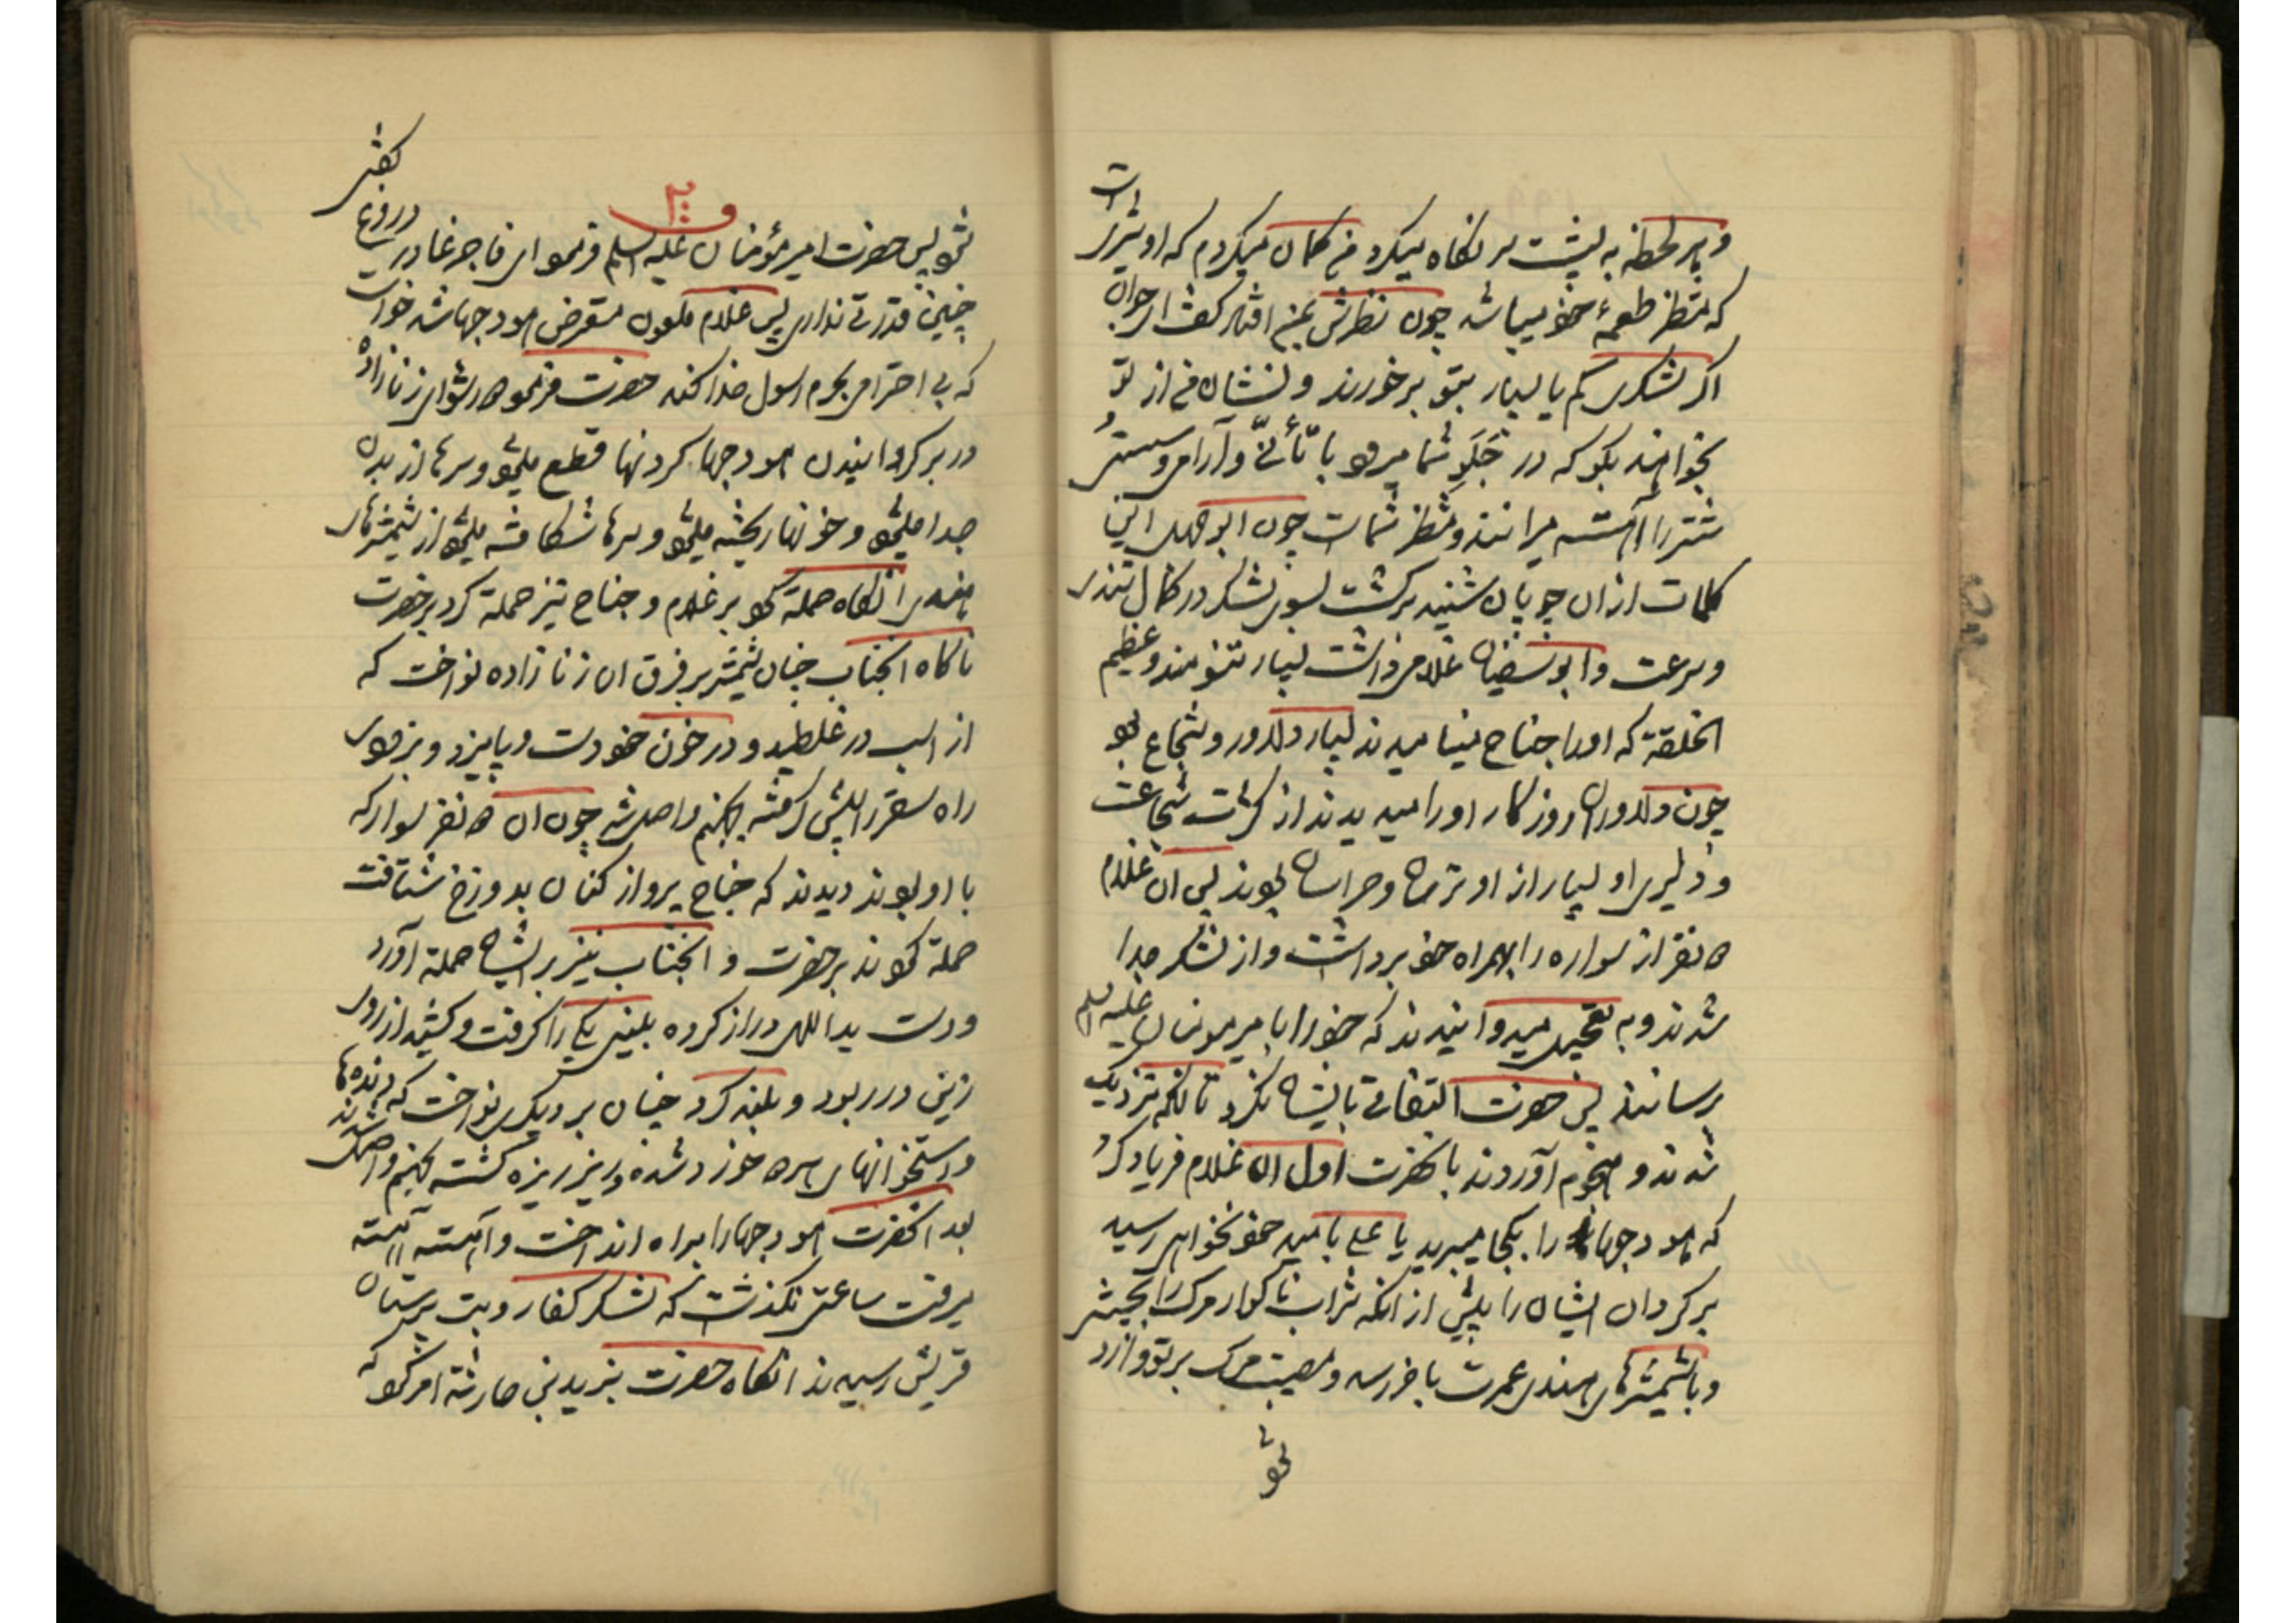 و هر لحظه به پشت سر نگاه میکرد من گمان میکردم که او شیریست
که منتظر طعمهٔ خود میباشد چون نظرش بمن افتاد گفت ای جوان
اگر لشکری کم یا بسیار بتو برخورند و نشان من از تو
بخواهند بگو که در جَلَوِ شما میرود با تأنّی و آرامی و
شتر را آهسته میرانند و منتظر شماست چون ابوجهل این
کلمات از ان چوپان شنید برگشت بسوی لشکر در کمال تندی
و سرعت و ابوسفیان غلامی داشت بسیار تنومند و عظیم
الخلقة که او را جناح مینامیدند بسیار دلاور و شجاع بود
چون دلاوران روزگار او را میدیدند از کثرت شجاعت
و دلیری او بسیار از او ترسان و هراسان بودند پس ان غلام
۵ نفر از سواره را بهمراه خود برداشت و از لشکر جدا
شدند و به تعجیل میدوانیدند که خود را بامیرمؤمنان علیه السلم
برسانند پس حضرت التفاتی بایشان نکرد تا انکه نزدیک
شدند و هجوم آوردند بانحضرت اول ان غلام فریاد کرد
که هودجها را بکجا میبرید یا علی بامید خود نخواهی رسید
برگردان ایشان را پیش از انکه شراب ناگوار مرگ را بچشی
و با شمشیرهای هندی عمرت باخر رسد و مصیبت مرگ بر تو وارد
شود
۲۰۰
شود پس حضرت امیرمؤمنان علیه السلم فرمود ای فاجر غادر دروغ گفتی
چنین قدرتی نداری پس غلام ملعون متعرض هودجها شد خواست
که بی احترامی بحرم رسول خدا کند حضرت فرمود دور شو ای زنازاده
در برگردانیدن هودجها گردنها قطع میشود و سرها از بدن
جدا میشود و خونها ریخته میشود و سرها شکافته میشود از شمشیرهای
هندی انگاه حمله نمود بر غلام و جناح نیز حمله کرد بر حضرت
ناگاه انجناب چنان شمشیر بر فرق ان زنازاده نواخت که
از اسب در غلطید و در خون خود دست و پا میزد و بزودی
راه سقر را پیش گرفته بجهنم واصل شد چون ان ۵ نفر سوار که
با او بودند دیدند که جناح پرواز کنان بدوزخ شتافت
حمله نمودند بر حضرت و انجناب نیز بر ایشان حمله آورد
و دست یداللهی دراز کرده یکی را گرفت و کشید از روی
زین در ربود و بلند کرد چنان بر دیگری نواخت که دنده‌ها
و استخوانهای خورد شده و ریز ریزه گشته بجهنم واصل شدند
بعد انحضرت هودجها را براه انداخت و آهسته آهسته
میرفت ساعتی نگذشت که لشکر کفار و بت پرستان
قریش رسیدند انگاه حضرت بزید بن حارثه امر نمود که